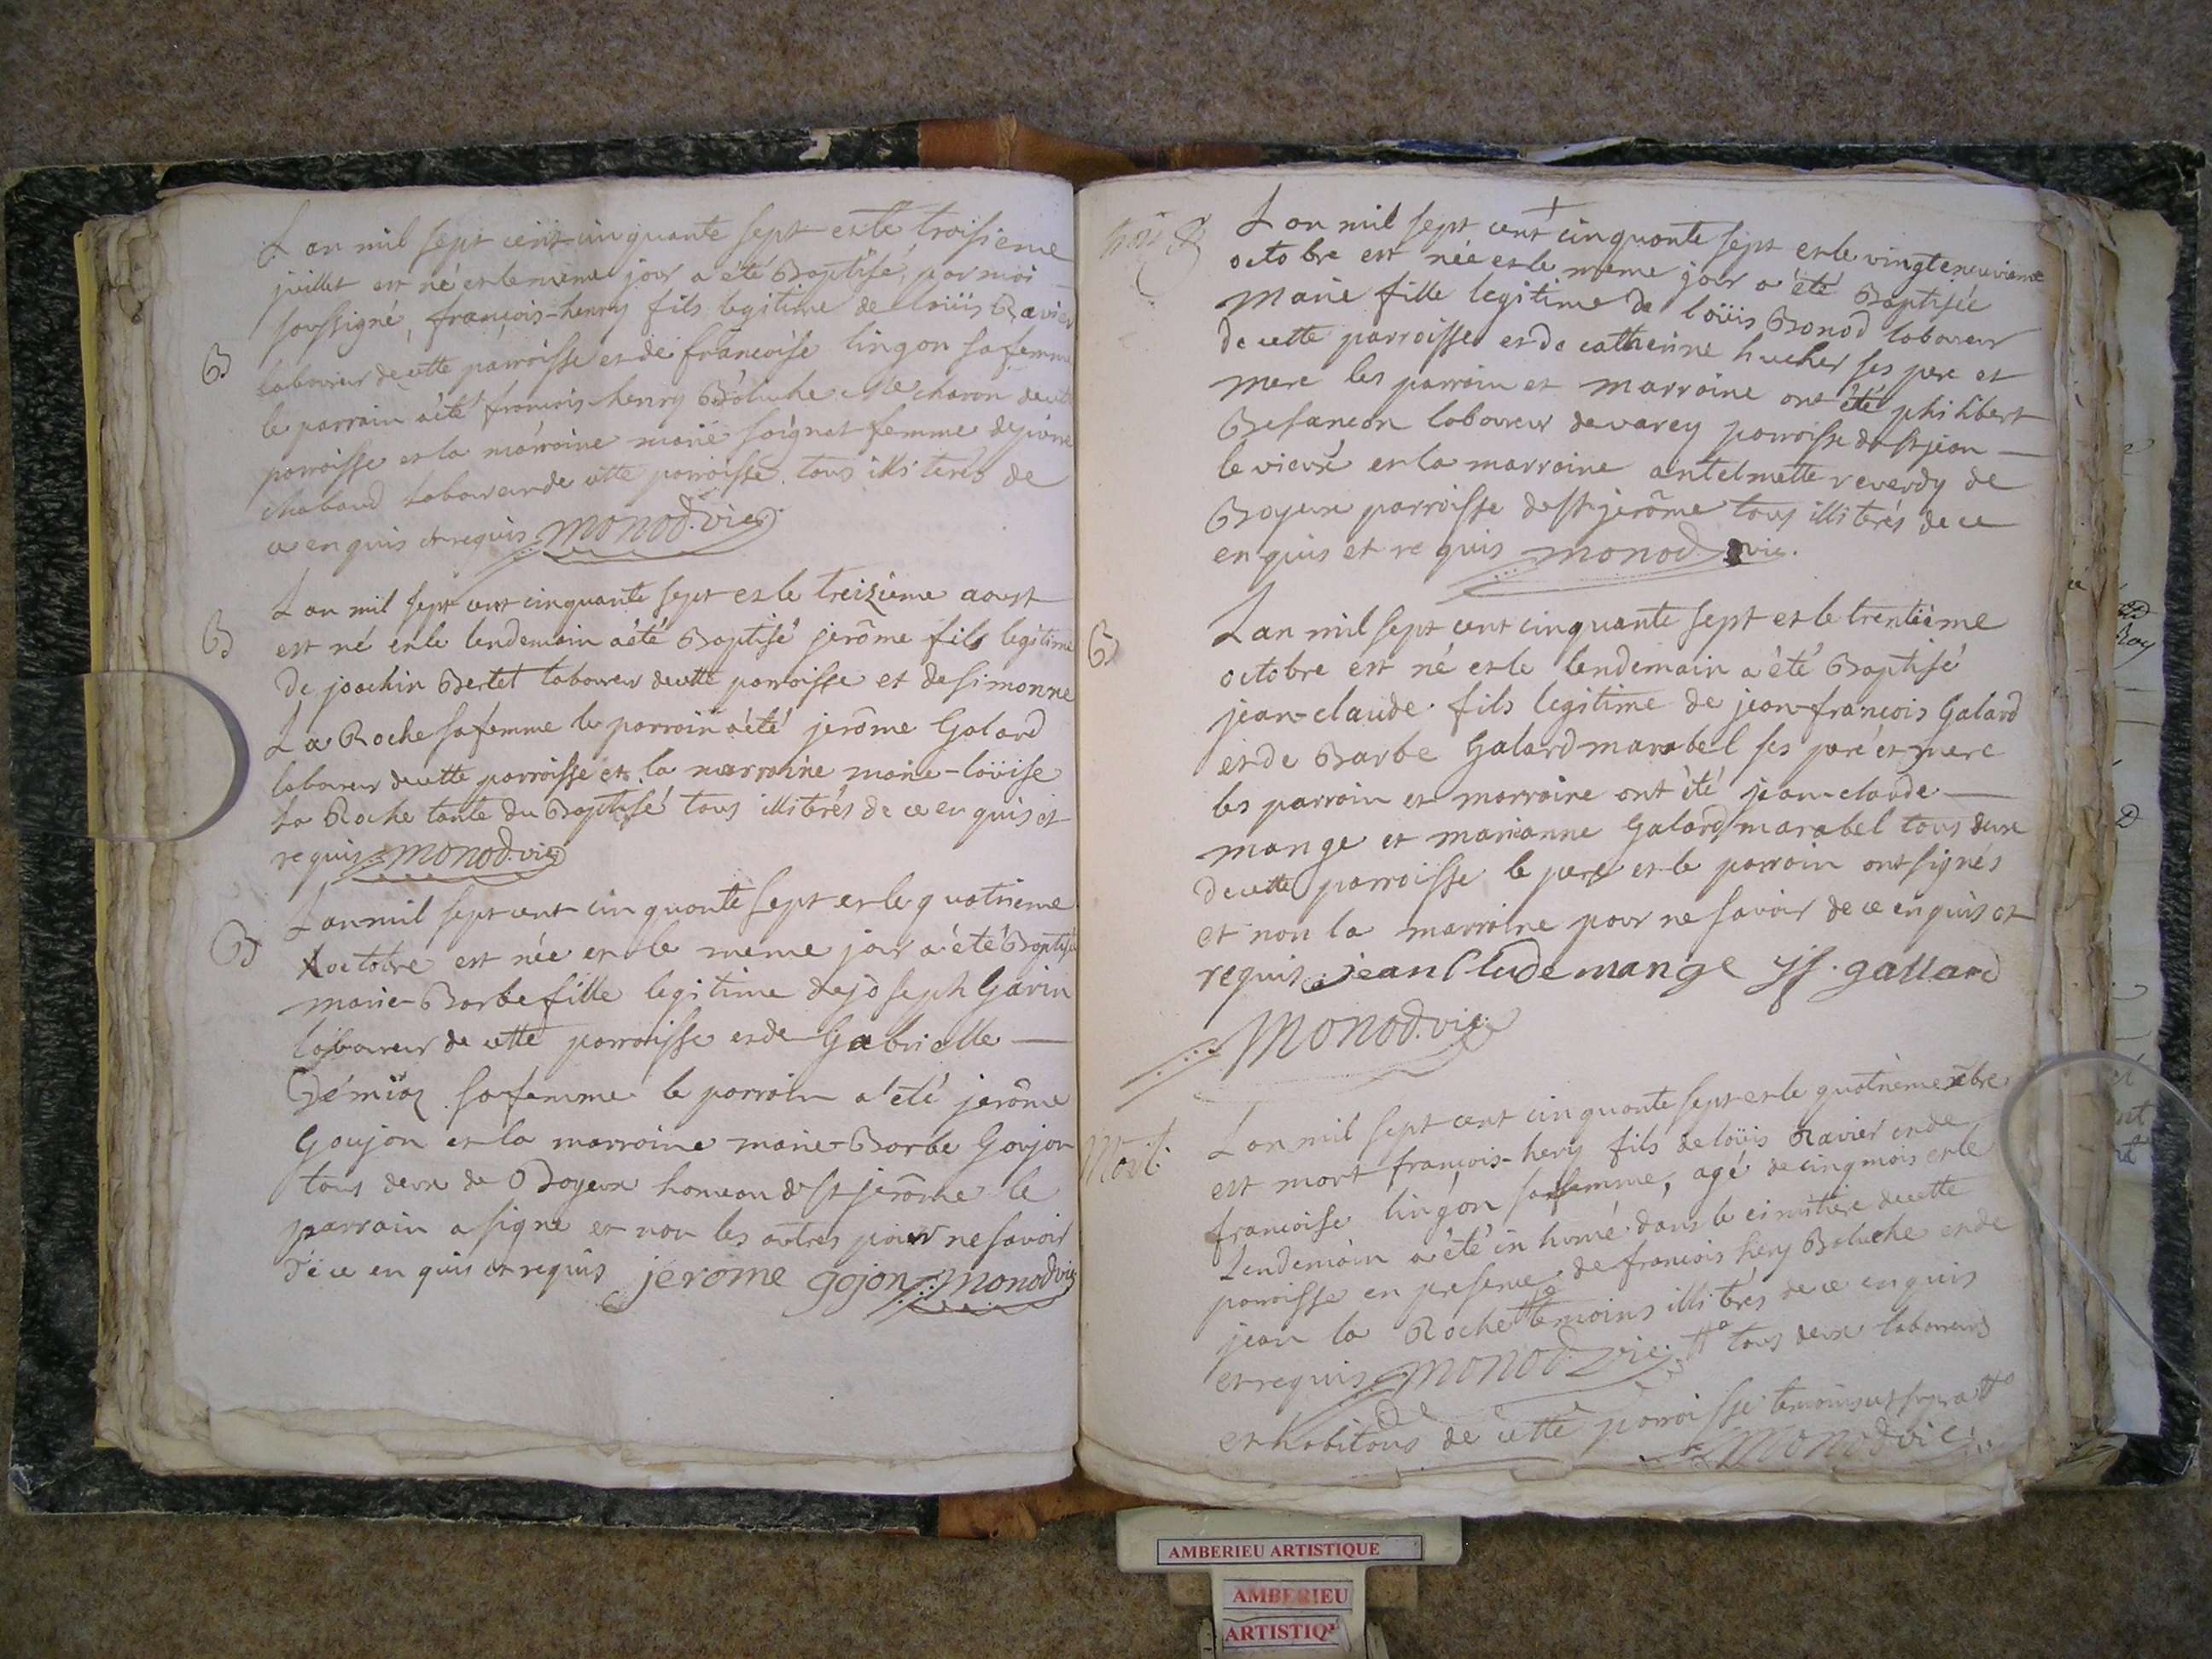 L an mil sept cent cinquante sept et le troisieme
juillet est né et le meme jour a été Baptisé, par moi
soussigné, françois-henry fils legitime de loüis Ravier
B
laboureur de cette parroisse et de francoise lingon sa femme
le parrain a été francois henry Boluche charon de
parroisse et la marraine marie soignat femme de
chabaud laboureur de cette parroisse tous illiterés de
ce enquis et requis monod.vic
L an mil sept cent cinquante sept et le treizieme aoust
B
est né et le lendemain a été Baptisé jerôme fils legitime
De joachin Bertet laboureur de cette parroisse et de simonne
La Roche sa femme le parroin a été jerôme Galard
laboureur de cette parroisse et la marraine marie-loüise
La Roche tante du Baptisé tous illiterés de ce enquis et
requis monod.vic
L an mil sept cent cinquante sept et le quatrieme
B
octobre est née et le meme jour a été Baptisée
marie-Barbe fille legitime de joseph Garin
laboureur de cette parroisse et de Gabrielle —
Démiaz sa femme le parroin a été jerôme
Goujon et la marraine marie-Barbe Goujon
tous deux de Boyeux hameau de st jerôme le
parrain a signé et non les autres pour ne savoir
de ce enquis et requis jerome gojon monod vic
L an mil sept cent cinquante sept et le vingt neuvieme
B
octobre est née et le meme jour a été Baptisée
Marie fille legitime de loüis Bonod laboureur
de cette parroisse et de catherine hucher ses pere et
mere les parrain et marraine ont été philibert
Besancon laboureur de varey parroisse de st jean —
le vieux et la marraine antelmette reverdy de
Boyeux parroisse de st jerôme tous illiterés de ce
enquis et requis monod vic.
L an mil sept cent cinquante sept et le trentième
B
octobre est né et le lendemain a été Baptisé
jean-claude fils legitime de jean-francois Galard
et de Barbe Galard marabel ses pere et mere
les parrain et marraine ont été jean-claude —
mange et marianne Galard marabel tous deux
de cette parroisse le pere et le parrain ont signés
et non la marraine pour ne savoir de ce enquis et
requis jean Clude mange jf. gallard
Monod.vic
L an mil sept cent cinquante sept et le quatrieme xbre
Mort.
est mort françois-hery fils de loüis Ravier et de
francoise lingon sa femme, agé de cinq mois et le
Lendemain a été inhumé dans le cimitiere de cette
parroisse en presence de francois hery Boluche et de
jean la Roche temoins illiterés de ce enquis
et requis monod vic. tous deux laboureurs
et habitans de cette parroisse temoins ut supra
Monod vic.
AMBERIEU ARTISTIQUE
AMBERIEU
ARTISTIQ